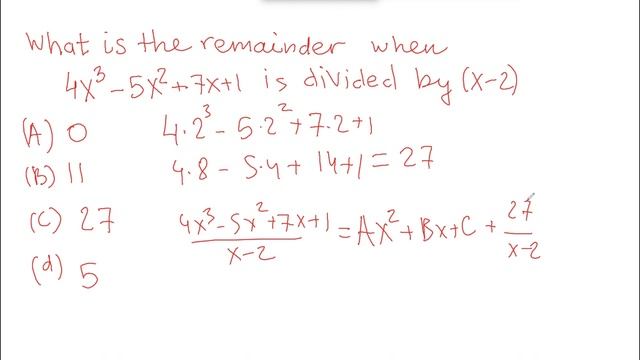 What is the remainder when
4x³ - 5x² + 7x + 1 is divided by (x-2)
(A) 0
4·2³ - 5·2² + 7·2 + 1
(B) 11
4·8 - 5·4 + 14 + 1 = 27
(C) 27
4x³ - 5x² + 7x + 1 / x - 2 = Ax² + Bx + C + 27 / x - 2
(d) 5